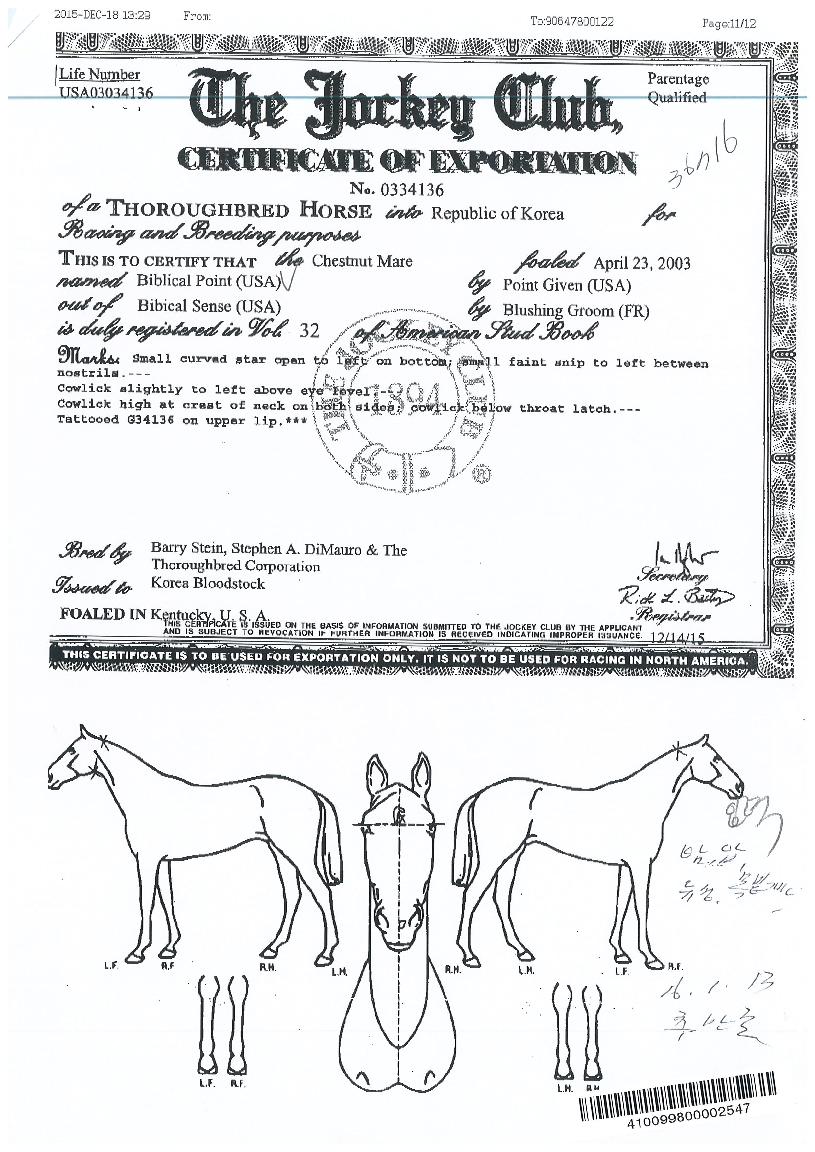 2015-DEC-18 13:29 From: To:90647800122 Page:11/12
Life Number
USA03034136
Parentage
Qualified
The Jockey Club,
CERTIFICATE OF EXPORTATION
No. 0334136
of a THOROUGHBRED HORSE into Republic of Korea for
Racing and Breeding purposes
THIS IS TO CERTIFY THAT the Chestnut Mare foaled April 23, 2003
named Biblical Point (USA) by Point Given (USA)
out of Bibical Sense (USA) by Blushing Groom (FR)
is duly registered in Vol. 32 of American Stud Book
Marks: Small curved star open to left on bottom; small faint snip to left between
nostrils.---
Cowlick slightly to left above eye level.--
Cowlick high at crest of neck on both sides; cowlick below throat latch.---
Tattooed G34136 on upper lip.***
THE JOCKEY CLUB
1894
®
Bred by Barry Stein, Stephen A. DiMauro & The
Thoroughbred Corporation
Issued to Korea Bloodstock
Secretary
Registrar
FOALED IN Kentucky, U. S. A.
THIS CERTIFICATE IS ISSUED ON THE BASIS OF INFORMATION SUBMITTED TO THE JOCKEY CLUB BY THE APPLICANT
AND IS SUBJECT TO REVOCATION IF FURTHER INFORMATION IS RECEIVED INDICATING IMPROPER ISSUANCE. 12/14/15
THIS CERTIFICATE IS TO BE USED FOR EXPORTATION ONLY. IT IS NOT TO BE USED FOR RACING IN NORTH AMERICA.
L.F. R.F. R.H. L.H. R.H. L.H. L.F. R.F.
16. 1. 13
L.F. R.F. L.H. R.H
410099800002547